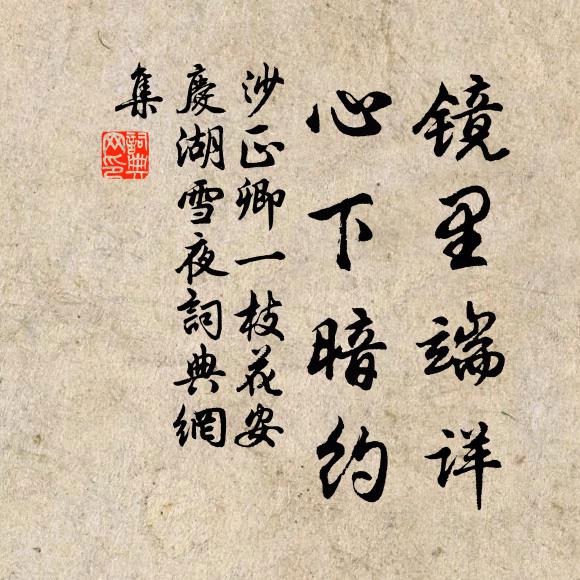 镜里端详
心下暗约
沙正卿一枝花安
庆湖雪夜詞典網
集
詞典
网印